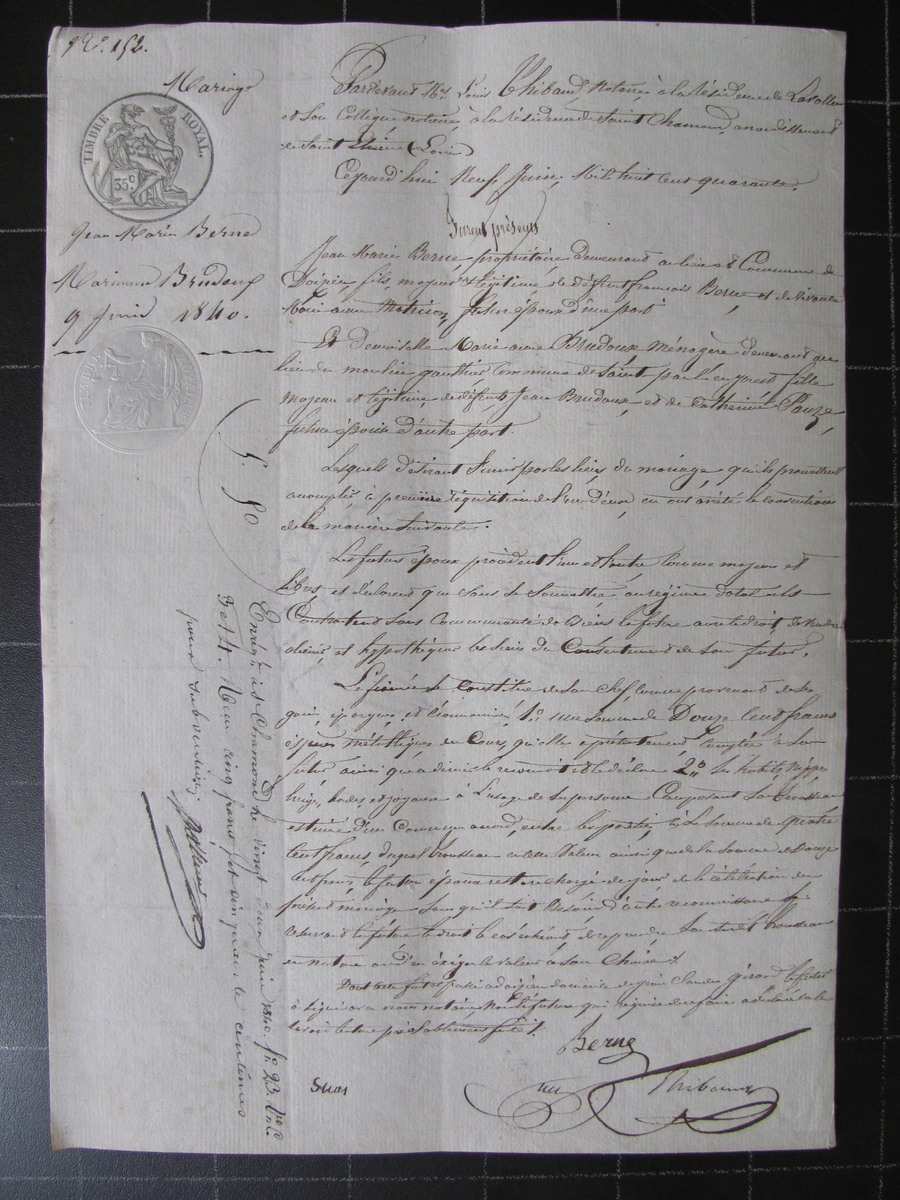 N°. 152.
Mariage
TIMBRE ROYAL.
35 c
Jean Marie Berne
Marianne Brudoux
9 Juin 1840.
5. 50
Pardevant Me Louis Thibaud, Notaire à la Résidence de Lavalla
et Son Collègue notaire à la résidence de Saint Chamond, arrondissement
de Saint Etienne (Loire)
Cejourd'hui Neuf Juin, Mil huit cent quarante.
Furent présents
Jean Marie Berne propriétaire demeurant au lieu et Commune de
fils majeur et légitime de défunt françois Berne et de vivante
future époux d'une part
Et Demoiselle Marie anne Brudoux Ménagère demeurant au
lieu du moulin gauthier Commune de Saint paul en jarest fille
majeure et légitime de défunt Jean Brudoux, et de Catherine
future épouse d'autre part.
Lesquels désirant s'unir par les liens du mariage qu'ils promettent
accomplir à première réquisition de l'un d'eux, en ont arrêté les conventions
de la manière suivante.
Les futurs époux procèdent l'un et l'autre comme majeurs et
libres, et déclarent que sans se soumettre au régime dotal ils
Contractent sans Communauté de biens la future aura le droit de vendre
et hypothéquer ses biens du Consentement de son futur.
La future se Constitue de son chef comme provenant de ses
gains, épargnes et économies, 1°. une somme de Douze Cent francs
espèces métalliques de Cours, qu'elle a présentement Comptée à son
futur ainsi que ce dernier le reconnait et le déclare 2°. ses habits, nippes
linges, hardes et joyaux à l'usage de sa personne Composant Son trousseau
estimé d'un Commun accord, entre les parties à la Somme de quatre
Cent francs, duquel trousseau en cette valeur ainsi que de la somme de Douze
cent francs le futur époux restera chargé du jour de la célébration du
présent mariage sans qu'il soit Besoin d'autre reconnaissance se
réservant la future le droit le cas échéant de reprendre son susdit trousseau
en nature ou d'en exiger la valeur à son Choix.
Dont acte fait passé domicile de jean Claude Girard le futur
a signé avec nous notaires non la future qui requise de faire a déclaré ne le
savoir lecture préalablement faite.
Berne
Thibaud
Enregé à St Chamond le vingt deux juin 1840 f° 23 Vo C
3 et 4. Reçu cinq francs et cinquante centimes
pour subvention